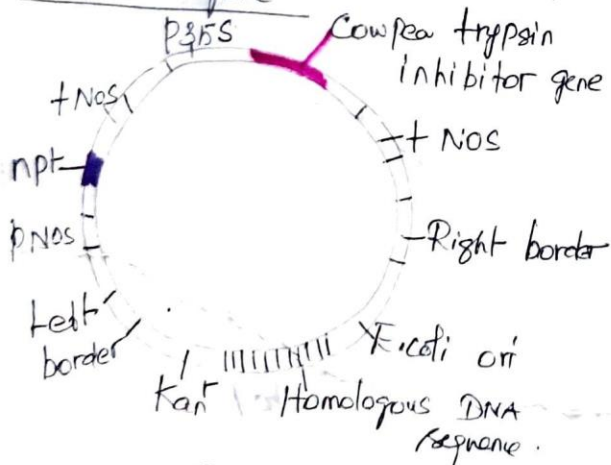 P35S
Cowpea trypsin
inhibitor gene
tNOS
tNOS
npt
pNOS
Right border
Left
border
E.coli ori
Kanr
Homologous DNA
sequence.